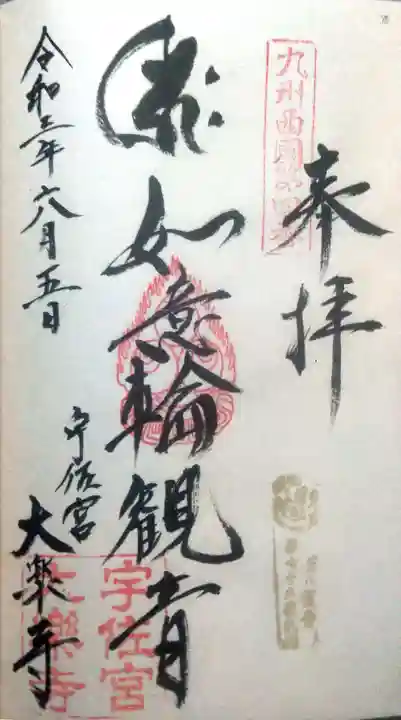 奉拝
九州西国第四番
如意輪観音
宇佐宮
大楽寺
宇佐宮
大樂寺
令和三年六月五日